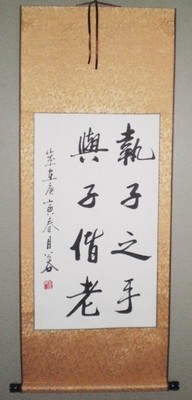 執子之手
與子偕老
庚寅春月